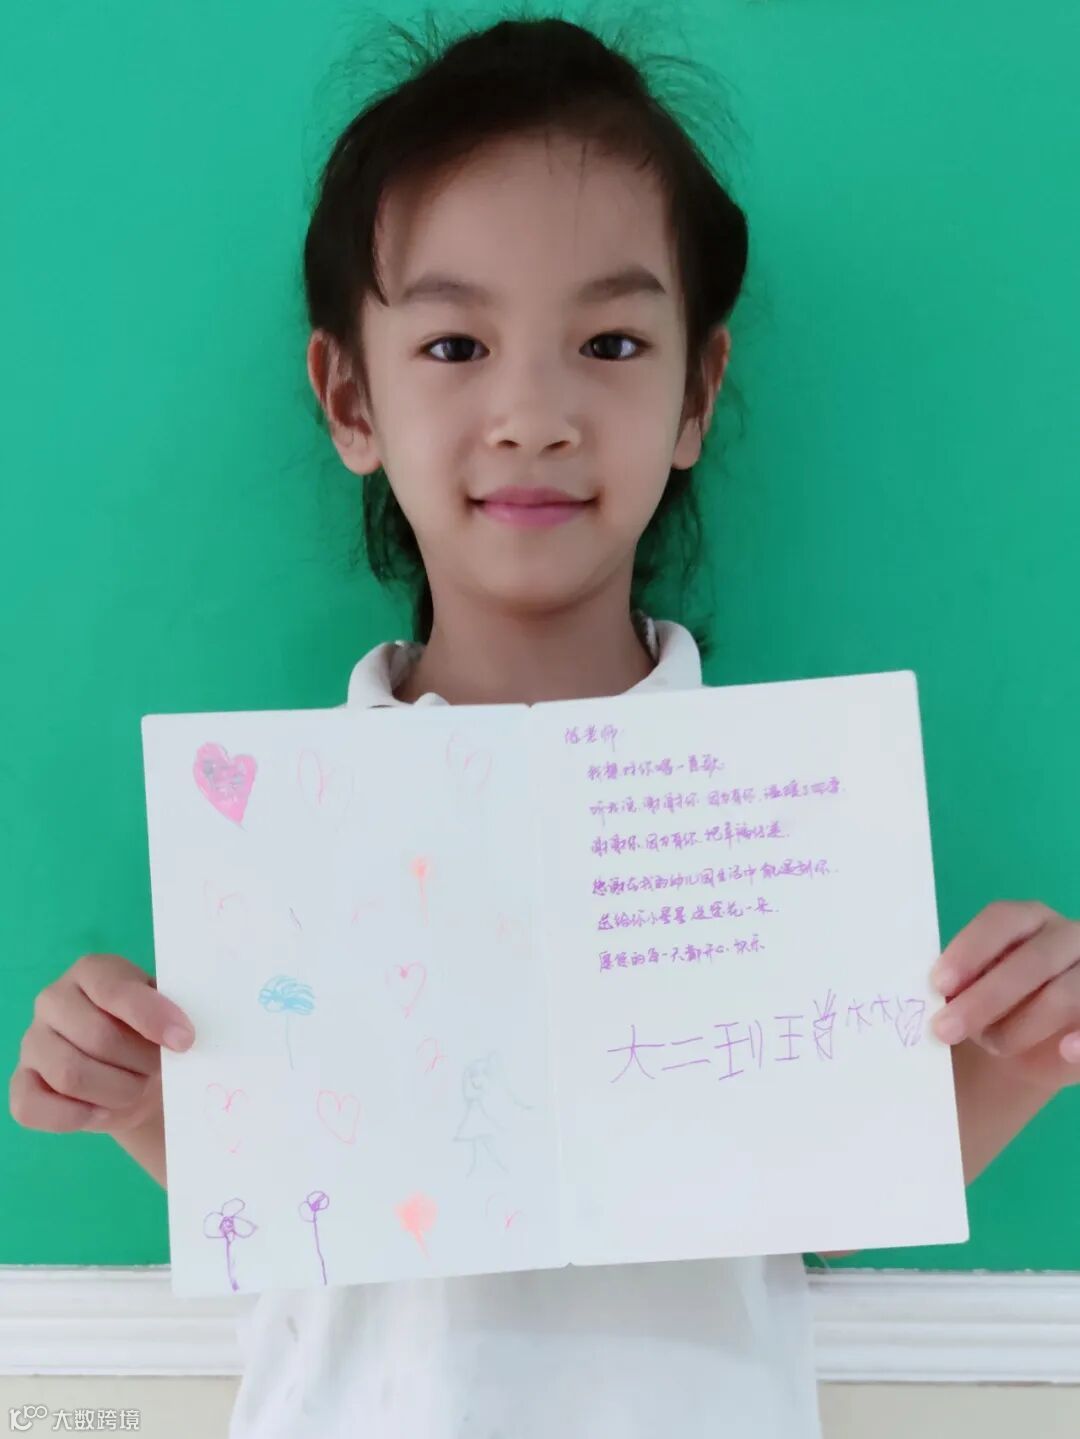 陈老师
我想对你唱一首歌
听我说 谢谢你 因为有你 温暖了四季
谢谢你 因为有你 把幸福传递
感谢在我的幼儿园生活中能遇到你
送给你小星星 送您花一朵
愿您的每一天都开心 快乐
大二班 王
大数跨境